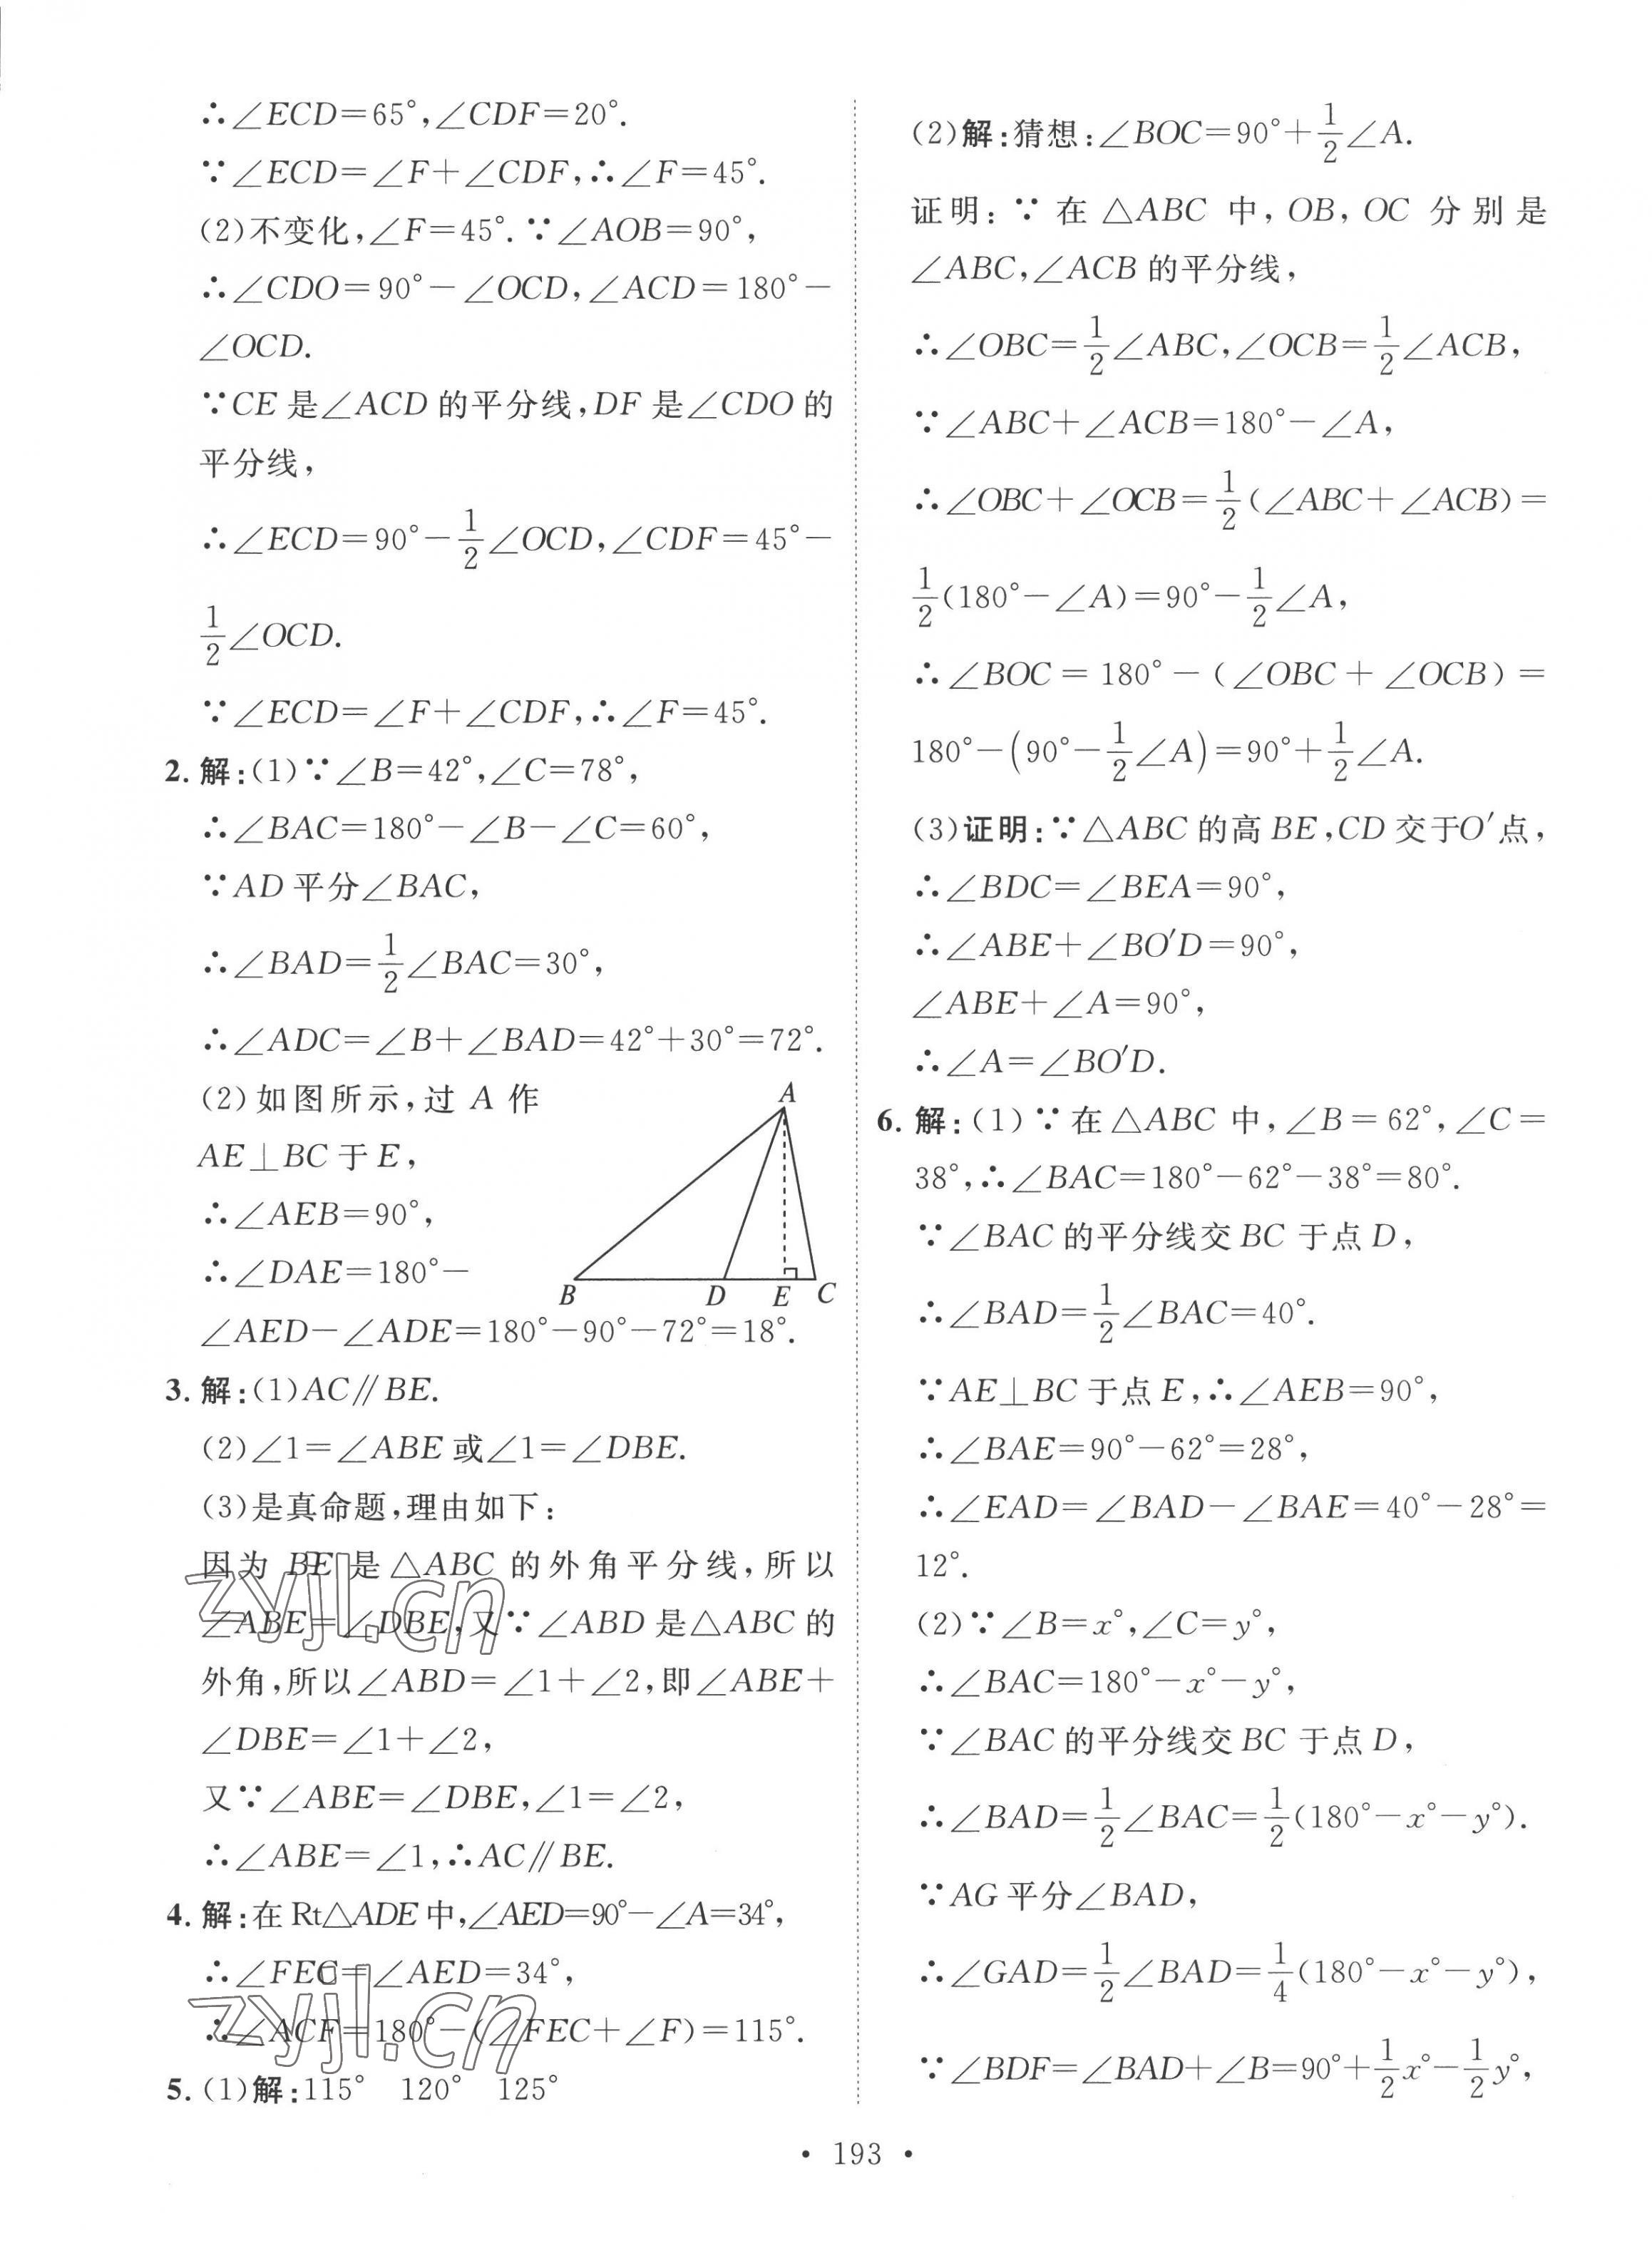 ∴∠ECD=65°,∠CDF=20°.
∵∠ECD=∠F+∠CDF,∴∠F=45°.
(2)不变化,∠F=45°.∵∠AOB=90°,
∴∠CDO=90°-∠OCD,∠ACD=180°-
∠OCD.
∵CE是∠ACD的平分线,DF是∠CDO的
平分线,
∴∠ECD=90°-1/2∠OCD,∠CDF=45°-
1/2∠OCD.
∵∠ECD=∠F+∠CDF,∴∠F=45°.
2. 解:(1)∵∠B=42°,∠C=78°,
∴∠BAC=180°-∠B-∠C=60°,
∵AD平分∠BAC,
∴∠BAD=1/2∠BAC=30°,
∴∠ADC=∠B+∠BAD=42°+30°=72°.
(2)如图所示,过A作
AE⊥BC于E,
∴∠AEB=90°,
∴∠DAE=180°-
A
B D E C
∠AED-∠ADE=180°-90°-72°=18°.
3. 解:(1)AC∥BE.
(2)∠1=∠ABE或∠1=∠DBE.
(3)是真命题,理由如下:
因为BE是△ABC的外角平分线,所以
∠ABE=∠DBE,又∵∠ABD是△ABC的
外角,所以∠ABD=∠1+∠2,即∠ABE+
∠DBE=∠1+∠2,
又∵∠ABE=∠DBE,∠1=∠2,
∴∠ABE=∠1,∴AC∥BE.
4. 解:在Rt△ADE中,∠AED=90°-∠A=34°,
∴∠FEC=∠AED=34°,
∴∠ACF=180°-(∠FEC+∠F)=115°.
5. (1)解:115° 120° 125°
zyjl.cn
zyjl.cn
(2)解:猜想:∠BOC=90°+1/2∠A.
证明:∵在△ABC中,OB,OC分别是
∠ABC,∠ACB的平分线,
∴∠OBC=1/2∠ABC,∠OCB=1/2∠ACB,
∵∠ABC+∠ACB=180°-∠A,
∴∠OBC+∠OCB=1/2(∠ABC+∠ACB)=
1/2(180°-∠A)=90°-1/2∠A,
∴∠BOC=180°-(∠OBC+∠OCB)=
180°-(90°-1/2∠A)=90°+1/2∠A.
(3)证明:∵△ABC的高BE,CD交于O′点,
∴∠BDC=∠BEA=90°,
∴∠ABE+∠BO′D=90°,
∠ABE+∠A=90°,
∴∠A=∠BO′D.
6. 解:(1)∵在△ABC中,∠B=62°,∠C=
38°,∴∠BAC=180°-62°-38°=80°.
∵∠BAC的平分线交BC于点D,
∴∠BAD=1/2∠BAC=40°.
∵AE⊥BC于点E,∴∠AEB=90°,
∴∠BAE=90°-62°=28°,
∴∠EAD=∠BAD-∠BAE=40°-28°=
12°.
(2)∵∠B=x°,∠C=y°,
∴∠BAC=180°-x°-y°,
∵∠BAC的平分线交BC于点D,
∴∠BAD=1/2∠BAC=1/2(180°-x°-y°).
∵AG平分∠BAD,
∴∠GAD=1/2∠BAD=1/4(180°-x°-y°),
∵∠BDF=∠BAD+∠B=90°+1/2x°-1/2y°,
• 193 •